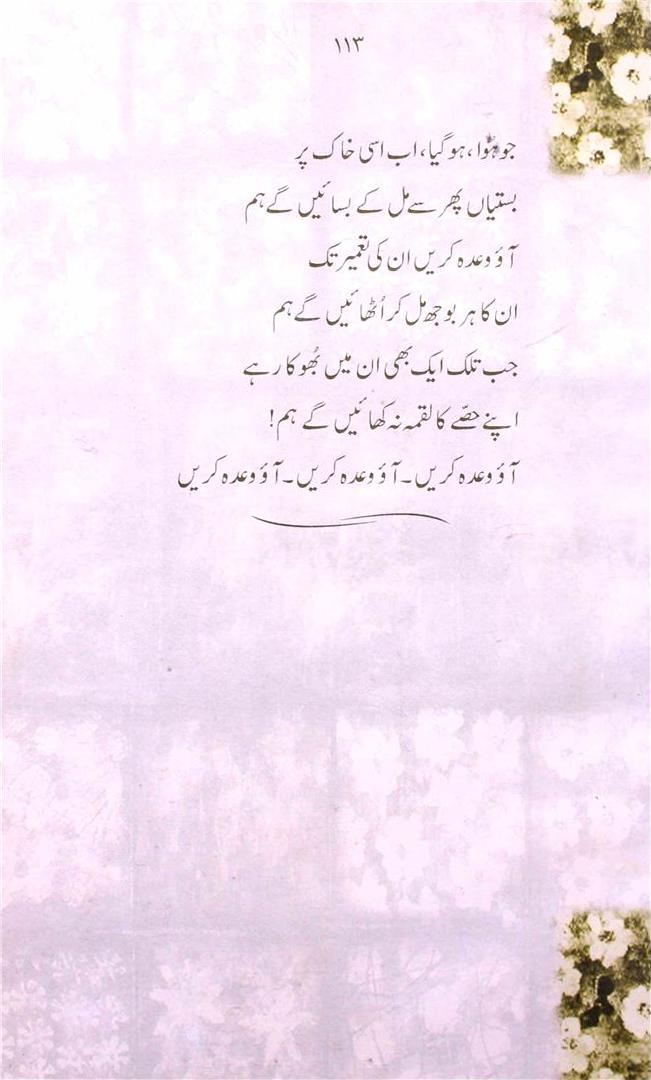 ۱۱۳
جو ہوا، ہو گیا، اب اسی خاک پر
بستیاں پھر سے مل کے بسائیں گے ہم
آؤ وعدہ کریں ان کی تعمیر تک
ان کا ہر بوجھ مل کر اُٹھائیں گے ہم
جب تلک ایک بھی ان میں بھُوکا رہے
اپنے حصّے کا لقمہ نہ کھائیں گے ہم!
آؤ وعدہ کریں۔ آؤ وعدہ کریں۔ آؤ وعدہ کریں